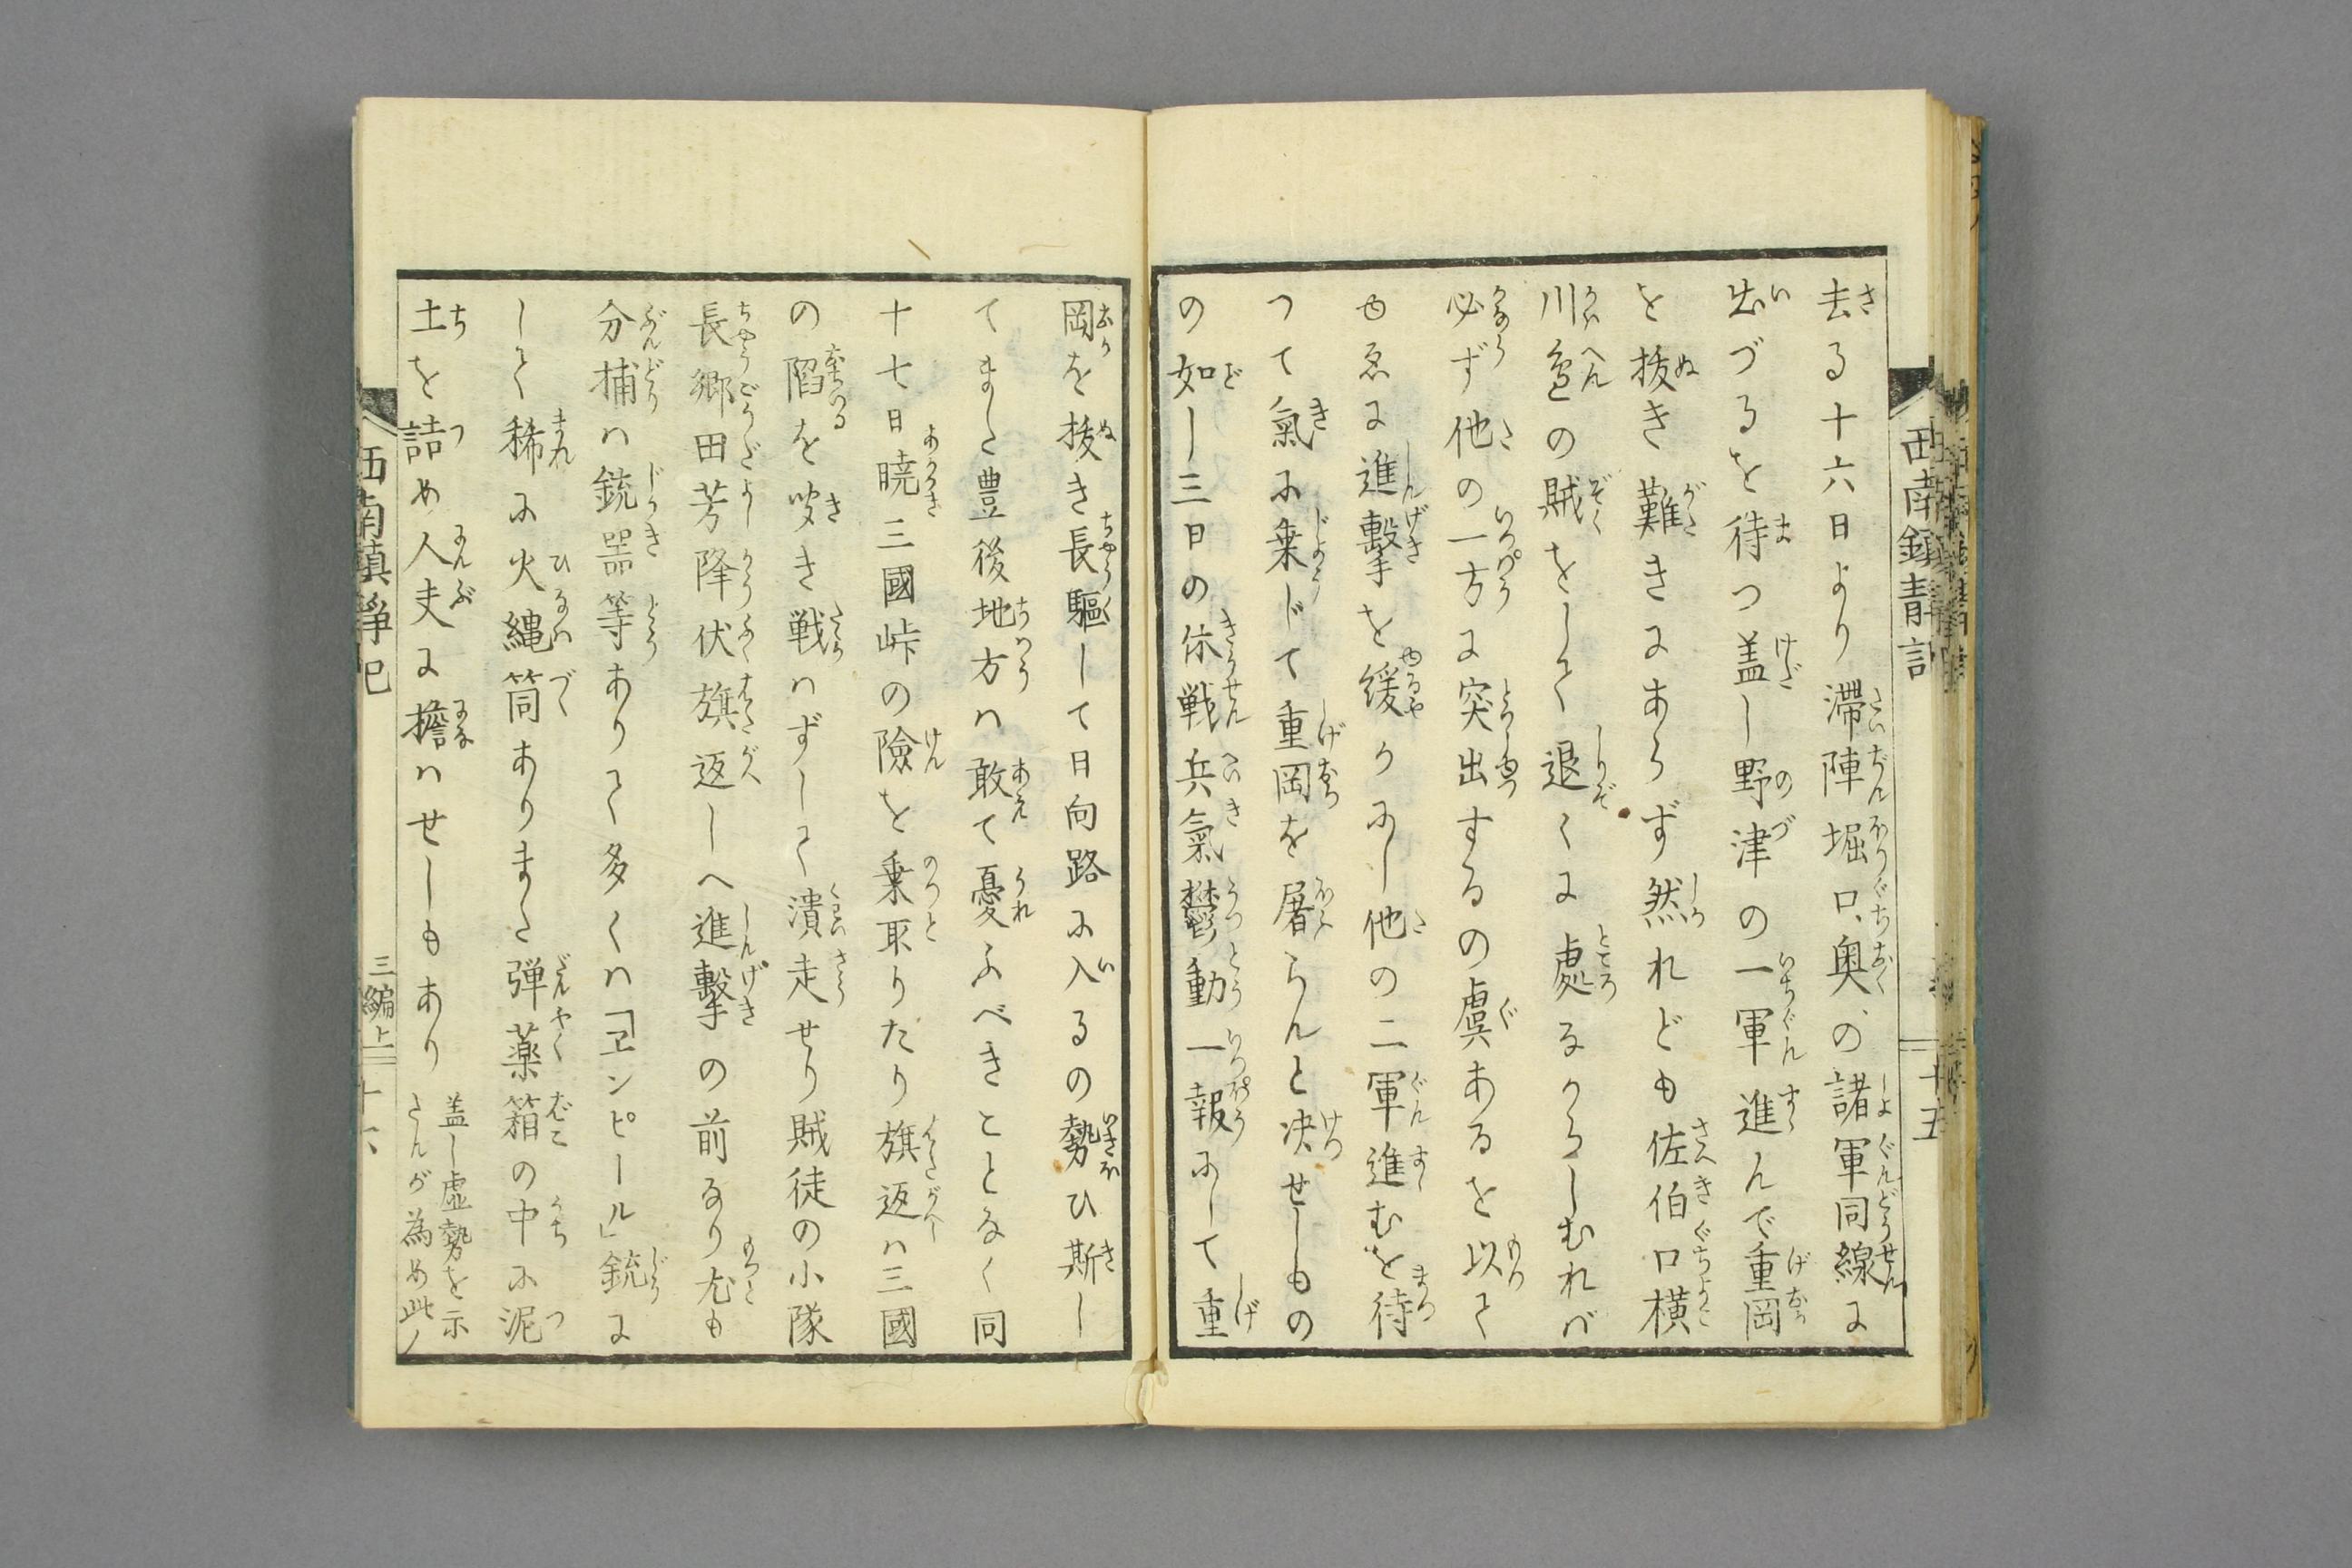 去る十六日より滞陣堀口、奥、の諸軍同線に
出づるを待つ盖し野津の一軍進んで重岡
を抜き難きにあらず然れども佐伯口横
川邉の賊をして退くに處なからしむれバ
必ず他の一方に突出するの虞あるを以て
ゆゑに進撃を緩りにし他の二軍進むを待
つて氣に乗じて重岡を屠らんと决せしもの
の如し三日の休戦兵氣鬱動一報にして重
西南鎮静記
十五
岡を抜き長驅して日向路に入るの勢ひ斯し
てまた豊後地方ハ敢て憂ふべきことなく同
十七日曉三國峠の險を乗取りたり旗返ハ三國
の陷を聞き戦ハずして潰走せり賊徒の小隊
長郷田芳降伏旗返しへ進撃の前なり尤も
分捕ハ銃器等ありて多くハ「ヱンピール」銃に
して稀に火縄筒ありまた弾薬箱の中に泥
土を詰め人夫に擔ハせしもあり
盖し虚勢を示
さんが為め此ノ
西南鎮静記
三編上
十六